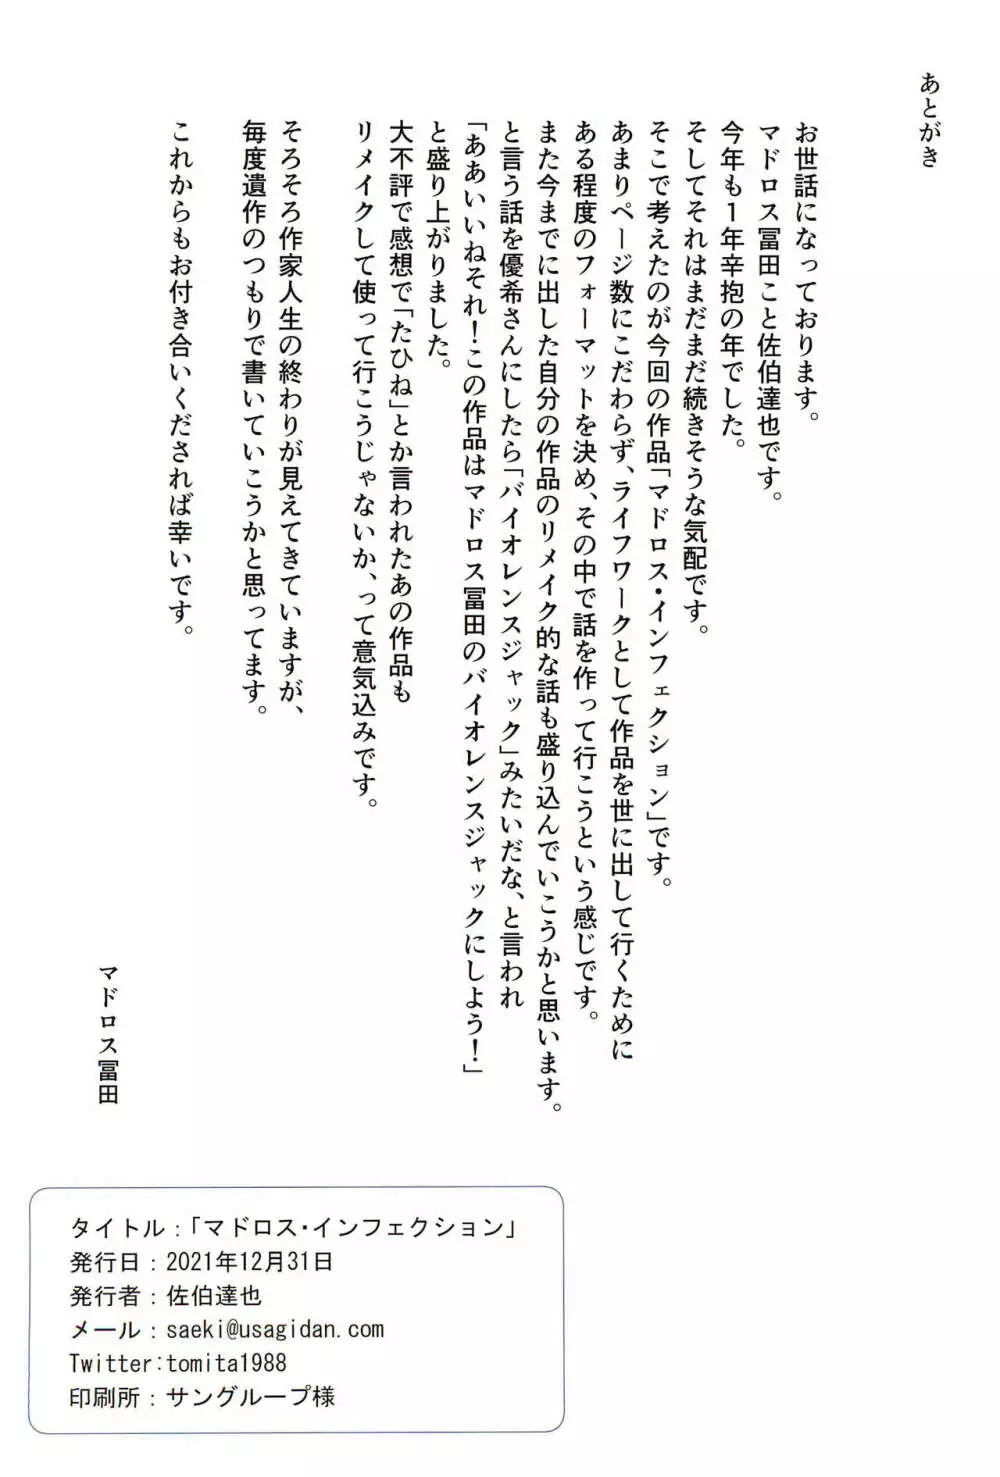 あとがき
お世話になっております。
マドロス冨田こと佐伯達也です。
今年も1年辛抱の年でした。
そしてそれはまだまだ続きそうな気配です。
そこで考えたのが今回の作品「マドロス・インフェクション」です。
あまりページ数にこだわらず、ライフワークとして作品を世に出して行くために
ある程度のフォーマットを決め、その中で話を作って行こうという感じです。
また今までに出した自分の作品のリメイク的な話も盛り込んでいこうかと思います。
と言う話を優希さんにしたら「バイオレンスジャック」みたいだな、と言われ
「ああいいねそれ！この作品はマドロス冨田のバイオレンスジャックにしよう！」
と盛り上がりました。
大不評で感想で「たひね」とか言われたあの作品も
リメイクして使って行こうじゃないか、って意気込みです。
そろそろ作家人生の終わりが見えてきていますが、
毎度遺作のつもりで書いていこうかと思ってます。
これからもお付き合いくだされば幸いです。
マドロス冨田
タイトル：「マドロス・インフェクション」
発行日：2021年12月31日
発行者：佐伯達也
メール：saeki@usagidan.com
Twitter:tomita1988
印刷所：サングループ様